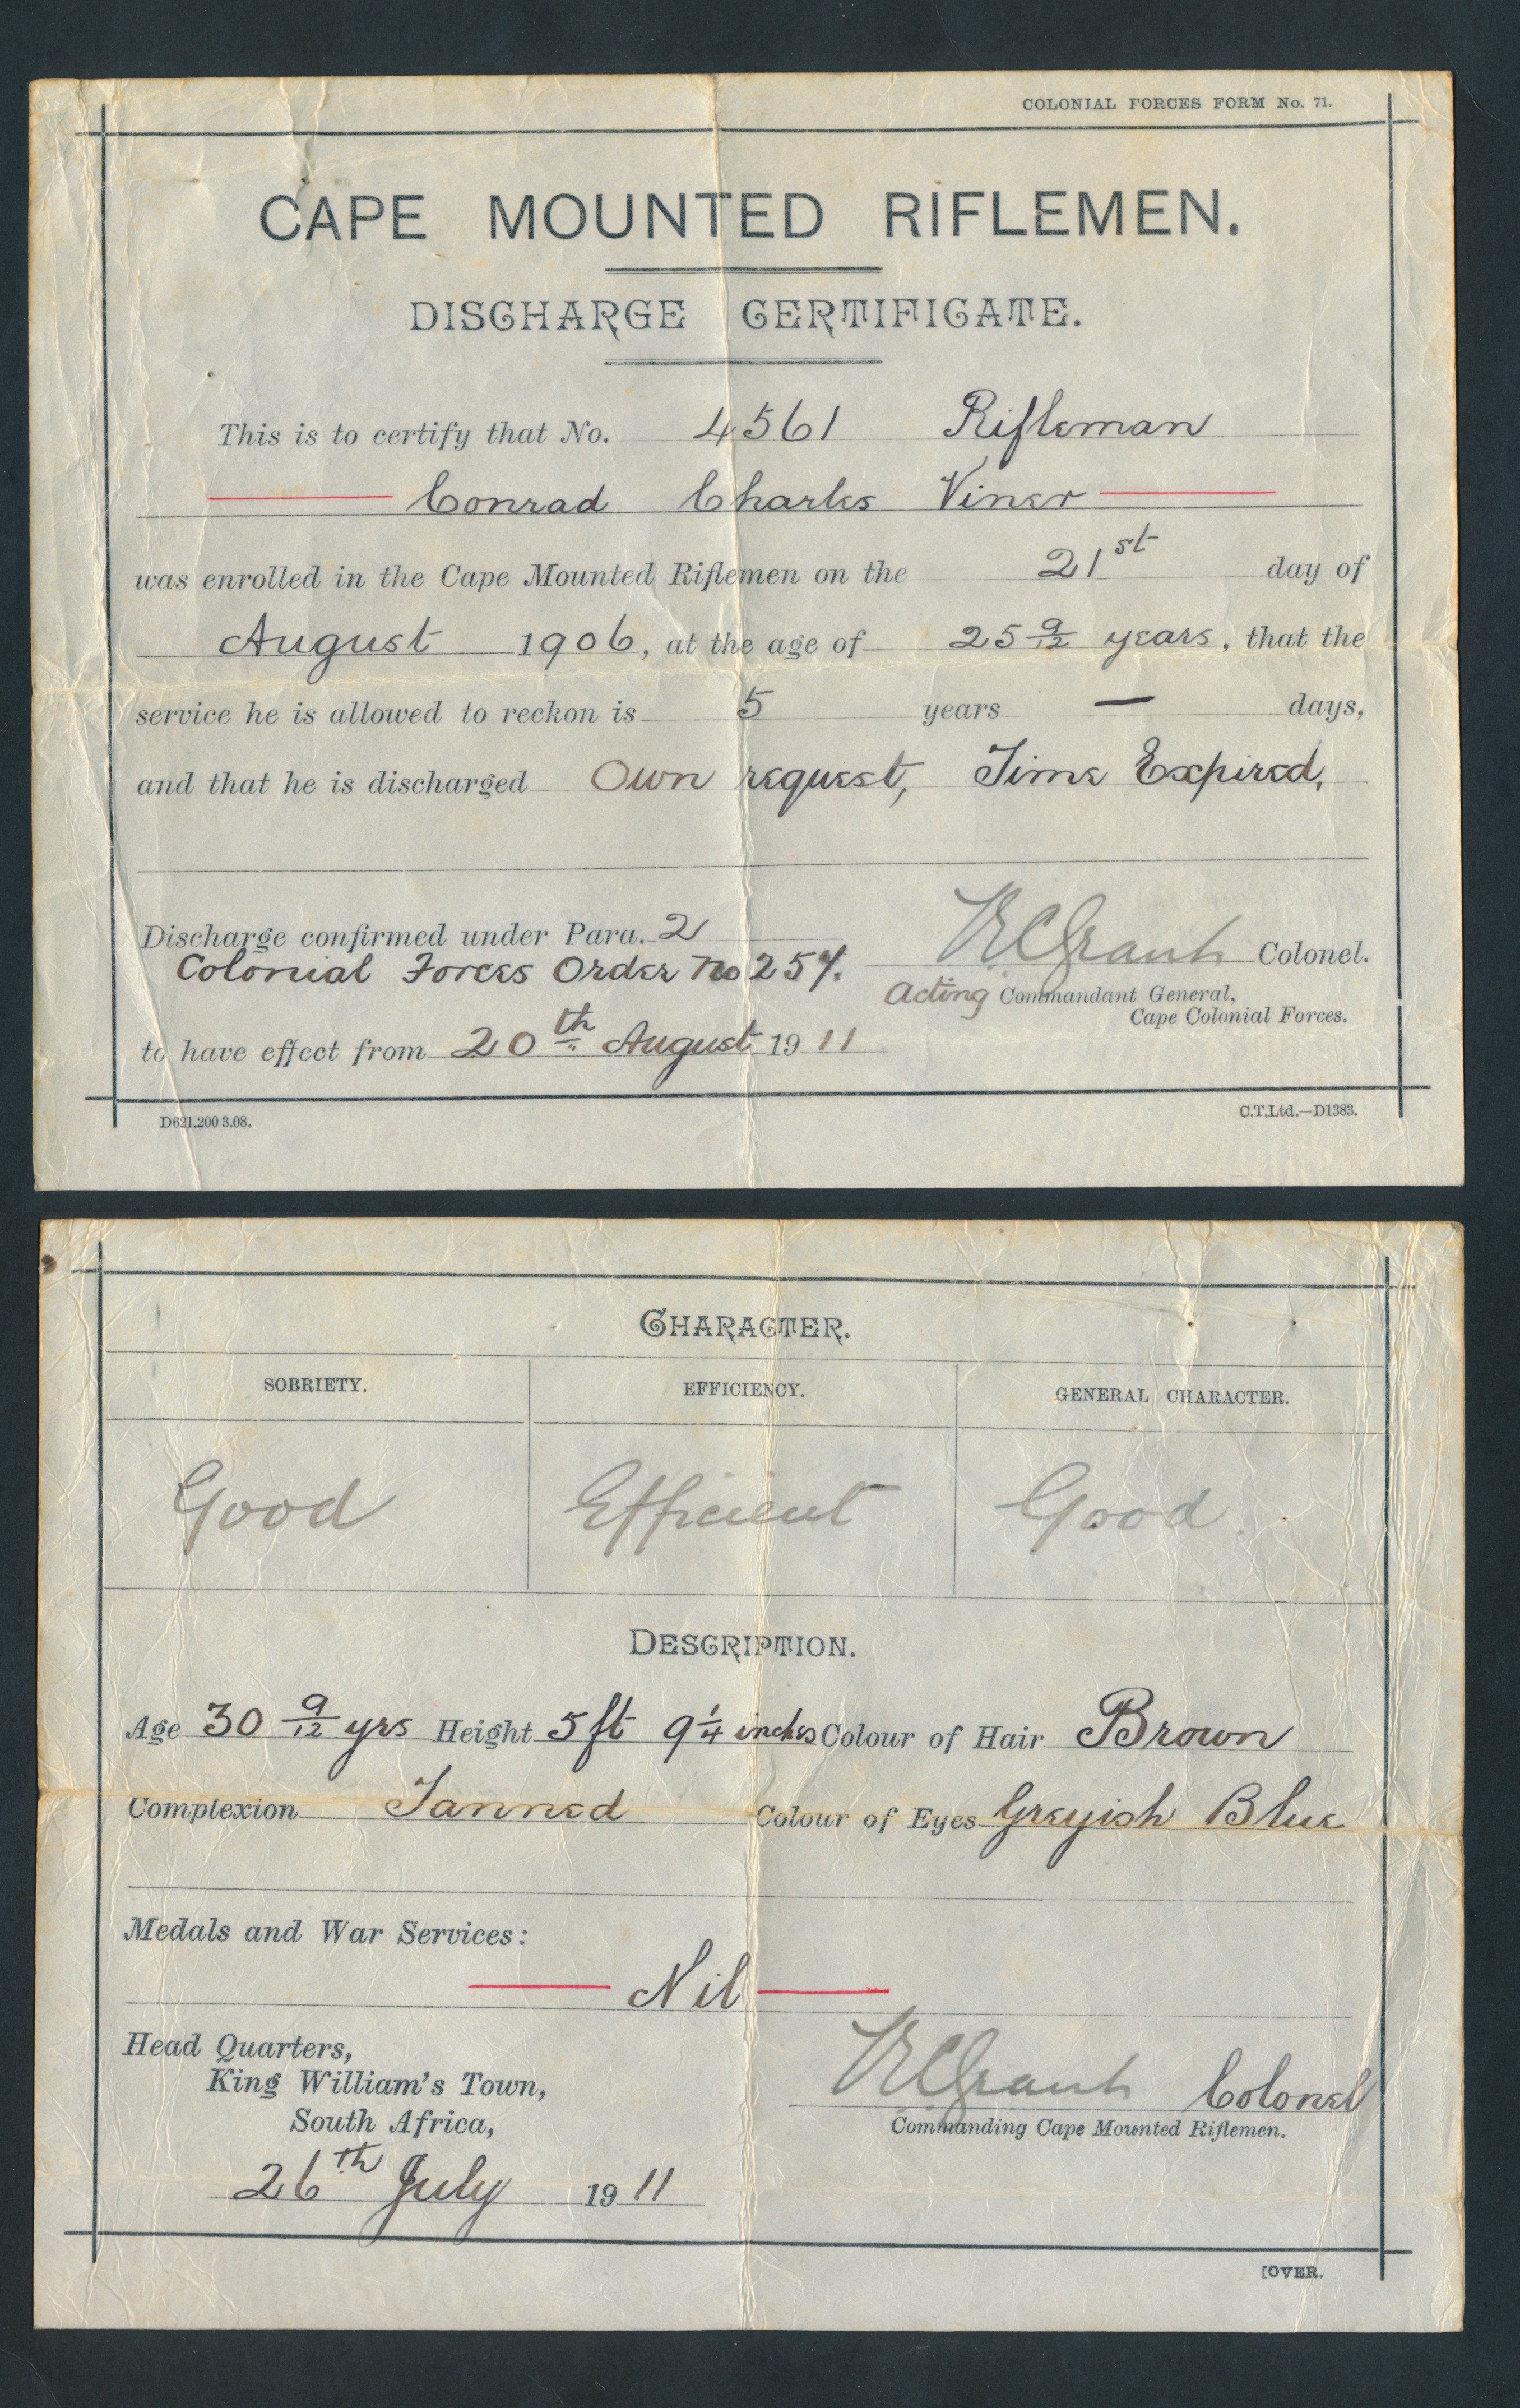 COLONIAL FORCES FORM No. 71.
CAPE MOUNTED RIFLEMEN.
DISCHARGE CERTIFICATE.
This is to certify that No. 4561 Rifleman
Conrad Charles Viner
was enrolled in the Cape Mounted Riflemen on the 21st day of
August 1906, at the age of 25 9/12 years, that the
service he is allowed to reckon is 5 years — days,
and that he is discharged Own request, Time Expired,
Discharge confirmed under Para. 2
Colonial Forces Order No 257.
Grant Colonel.
Acting Commandant General,
Cape Colonial Forces.
to have effect from 20th August 1911
D621.200 3.08.
C.T.Ltd.—D1383.
CHARACTER.
SOBRIETY. EFFICIENCY. GENERAL CHARACTER.
Good Efficient Good
DESCRIPTION.
Age 30 9/12 yrs Height 5 ft 9 1/4 inches Colour of Hair Brown
Complexion Tanned Colour of Eyes Greyish Blue
Medals and War Services:
Nil
Head Quarters,
King William's Town,
South Africa,
26th July 1911
Grant Colonel
Commanding Cape Mounted Riflemen.
[OVER.